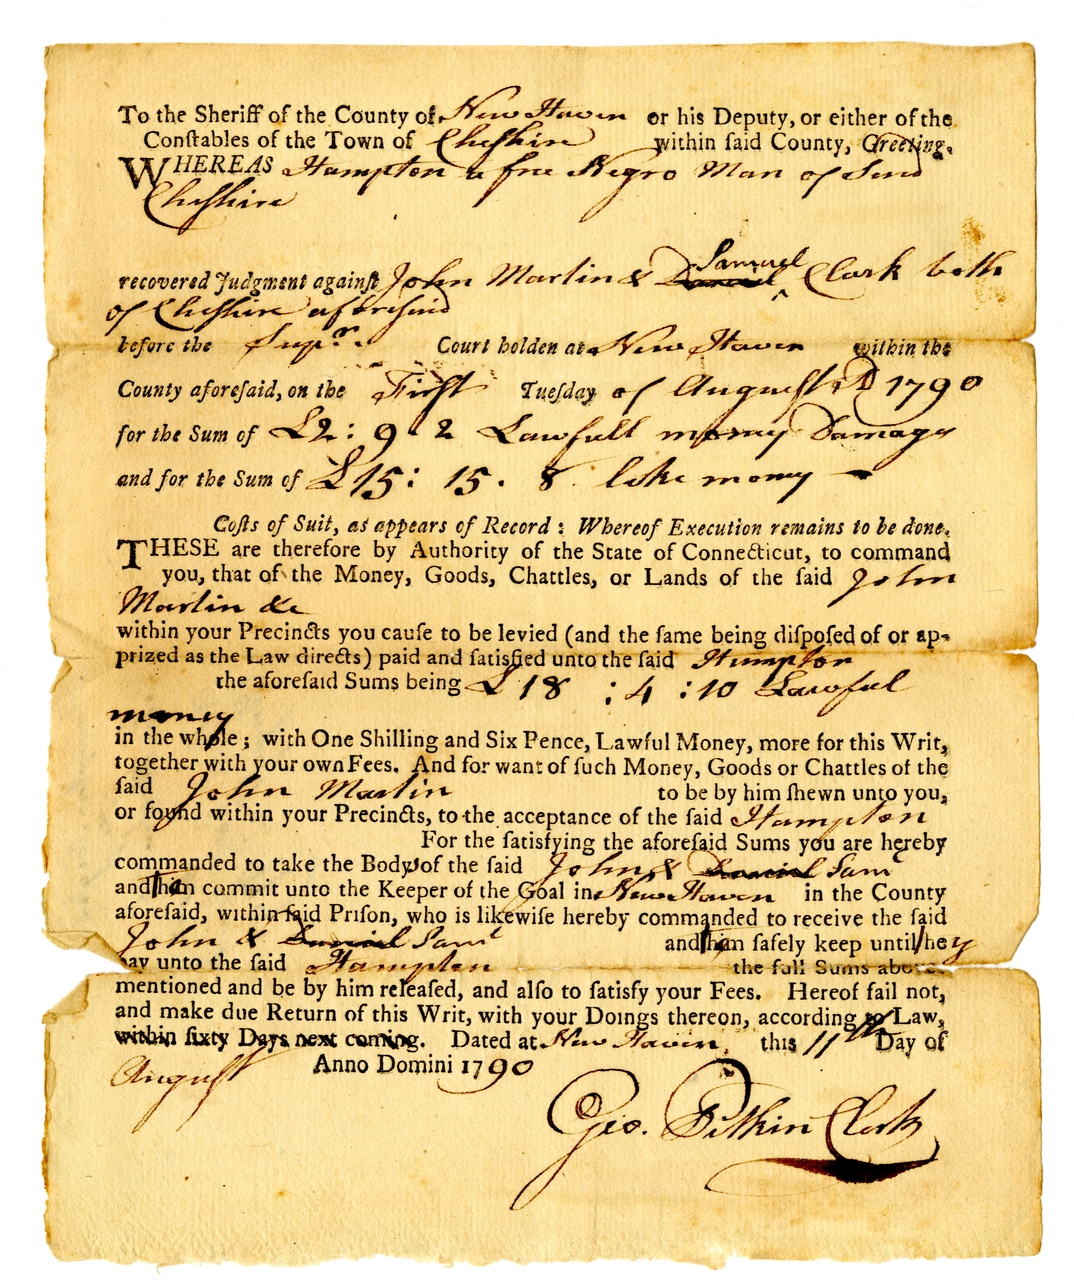 To the Sheriff of the County of New Haven or his Deputy, or either of the
Conſtables of the Town of Cheſhire within ſaid County, Greeting.
WHEREAS Hampton a free Negro Man of Said
Cheſhire
Samuel
recovered Judgment againſt John Martin & Daniel ^ Clark both
of Cheſhire aforesaid
before the Supr. Court holden at New Haven within the
County aforeſaid, on the Firſt Tueſday of August AD 1790
for the Sum of £2 : 9 . 2 Lawfull money Damage
and for the Sum of £15 : 15 . 8 like money —
Coſts of Suit, as appears of Record : Whereof Execution remains to be done.
THESE are therefore by Authority of the State of Connecticut, to command
you, that of the Money, Goods, Chattles, or Lands of the ſaid John
Martin &c
within your Precincts you cauſe to be levied (and the ſame being diſpoſed of or ap-
prized as the Law directs) paid and ſatisfied unto the ſaid Hampton
the aforeſaid Sums being £18 : 4 : 10 Lawful
money
in the whole ; with One Shilling and Six Pence, Lawful Money, more for this Writ,
together with your own Fees. And for want of ſuch Money, Goods or Chattles of the
ſaid John Martin to be by him ſhewn unto you,
or found within your Precincts, to the acceptance of the ſaid Hampton
For the ſatisfying the aforeſaid Sums you are hereby
commanded to take the Bodys of the ſaid John & Daniel Saml
and them commit unto the Keeper of the Goal in New Haven in the County
aforeſaid, within ſaid Priſon, who is likewiſe hereby commanded to receive the ſaid
John & Daniel Saml and them ſafely keep until they
pay unto the ſaid Hampton the full Sums above-
mentioned and be by him releaſed, and alſo to ſatisfy your Fees. Hereof fail not,
and make due Return of this Writ, with your Doings thereon, according to Law,
within ſixty Days next coming. Dated at New Haven this 11th Day of
August Anno Domini 1790
Geo. Pitkin Clerk